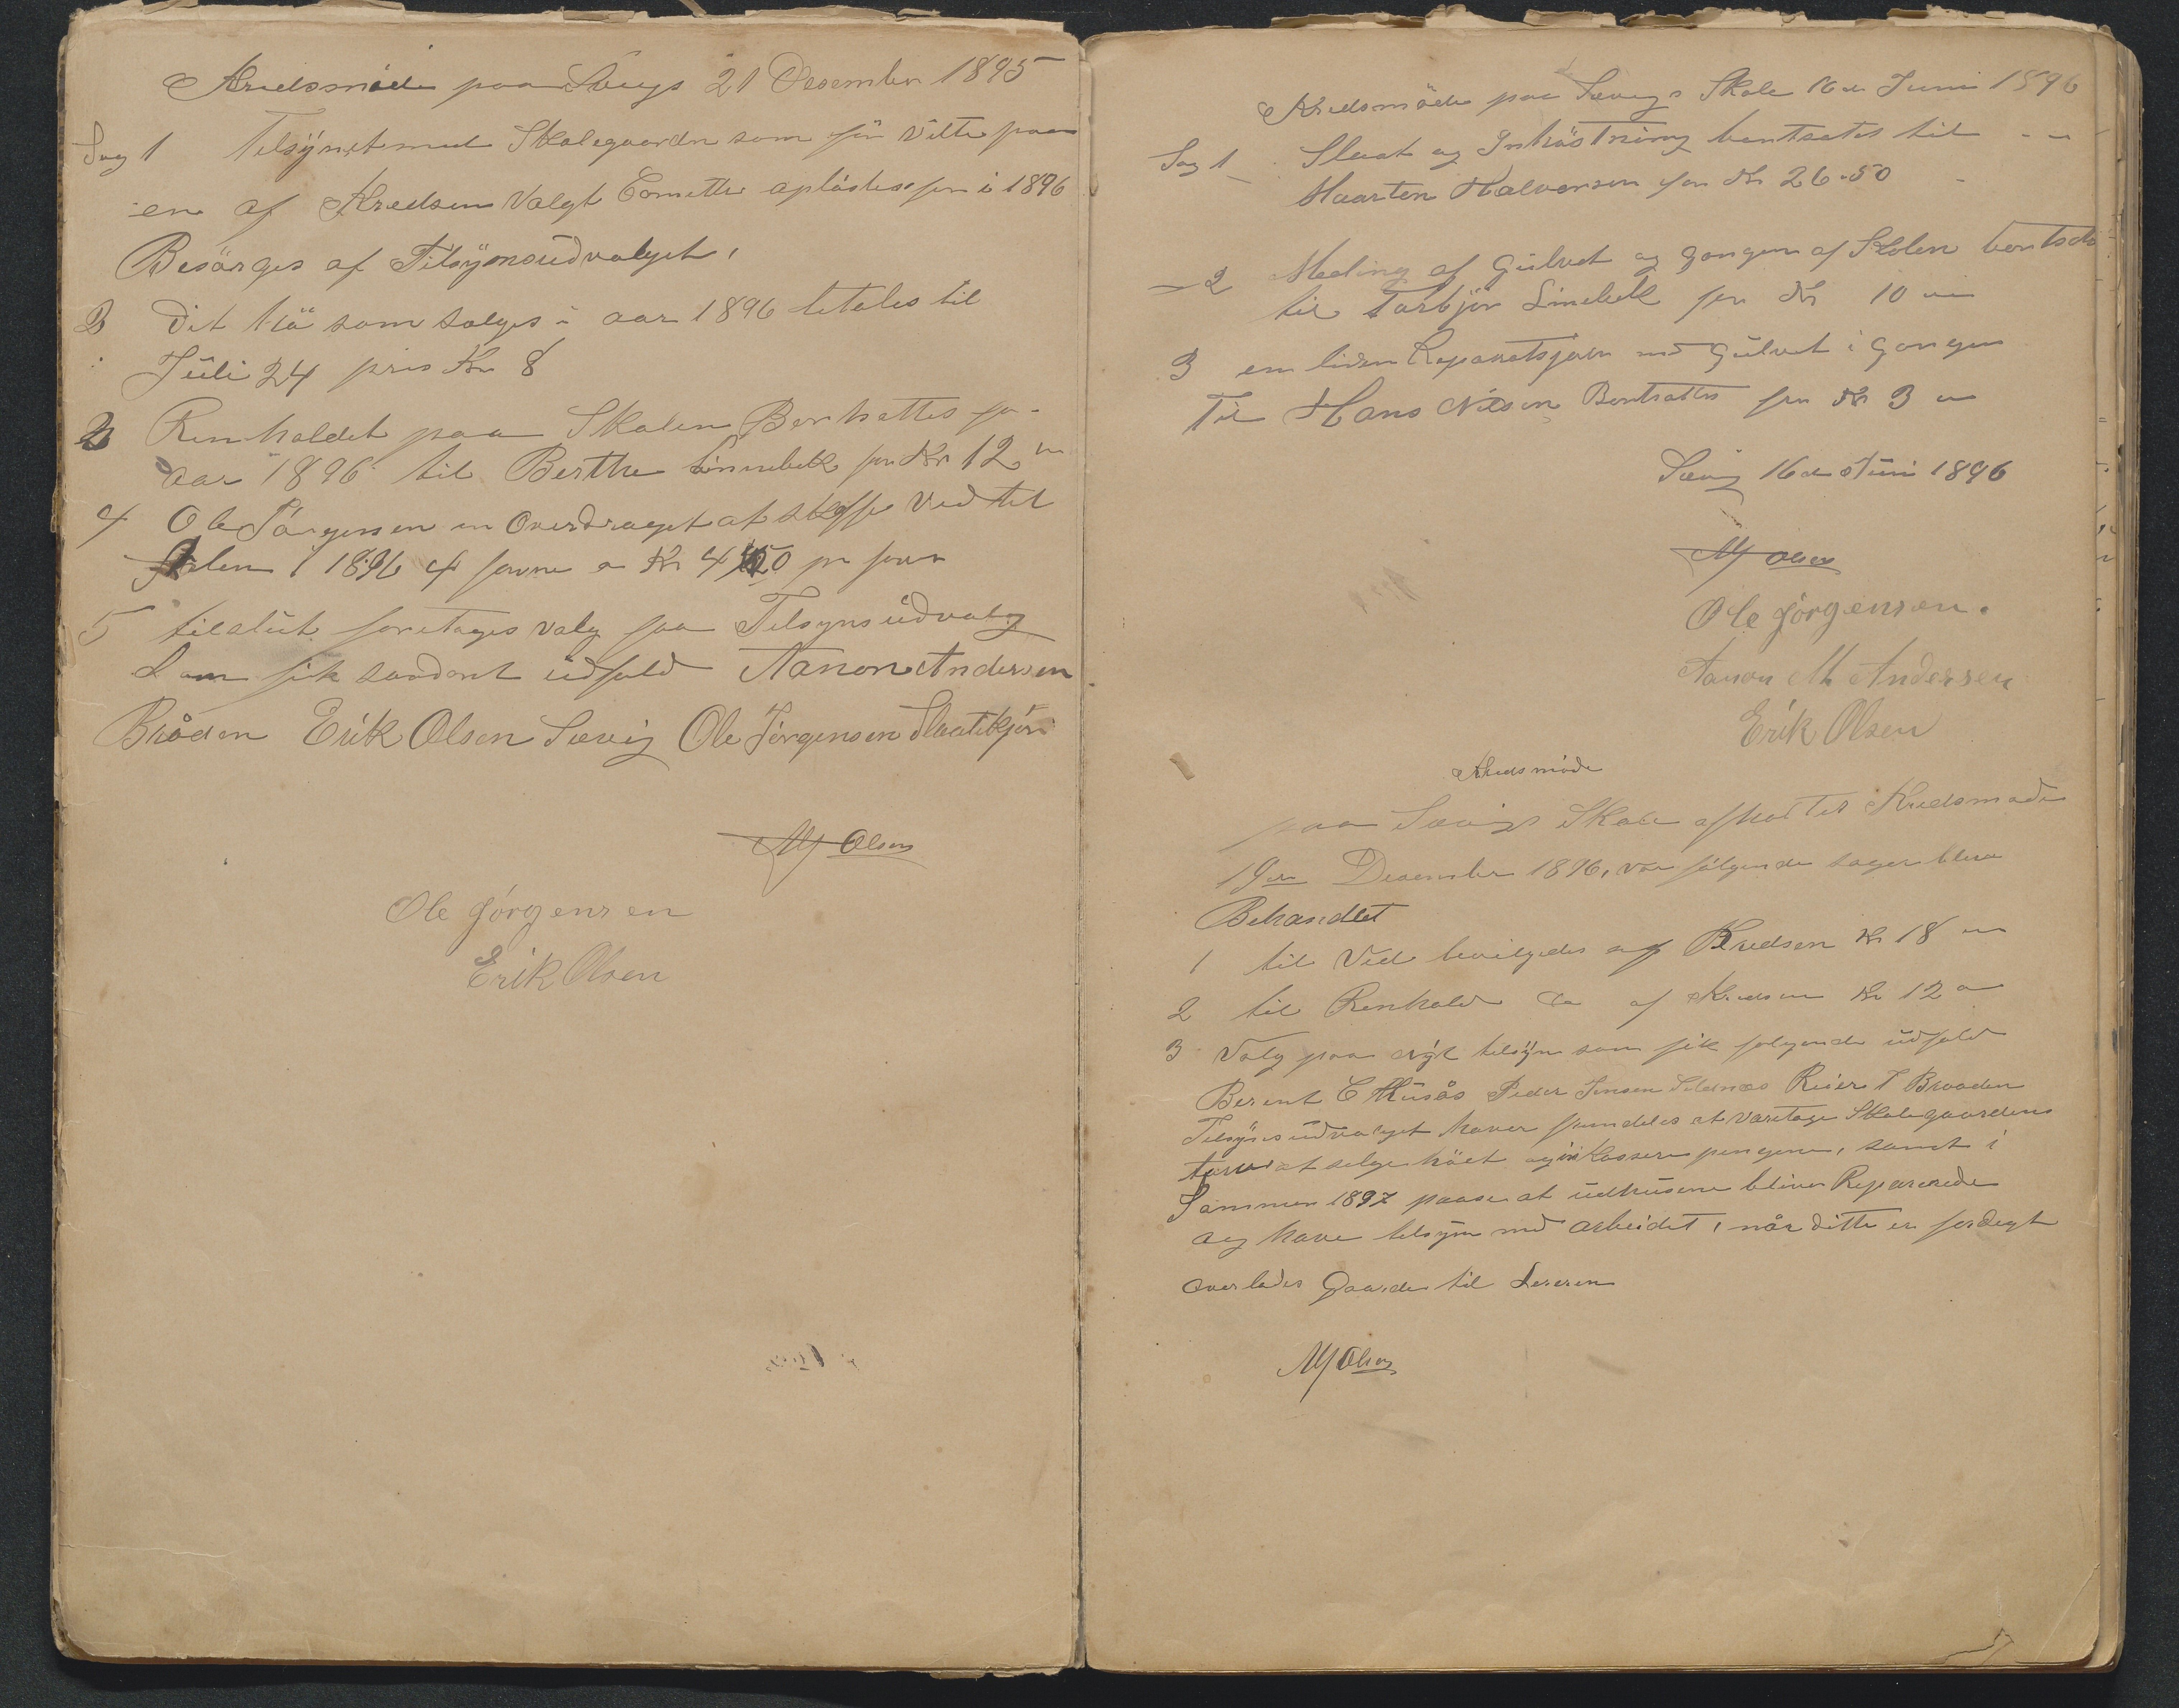 Kredsmöde paa Sævigs 21 Desember 1895
Sag 1 Tilsÿnet med Skolegaarden som för Vilte paa
en af Kredsen Valgt Comette oplöstes for i 1896
Besörges af Tilsÿnsudvalget,
2 Dit hö som solges i aar 1896 betales til
Jüli 24 pris Kr 8
3 Renholdet paa Skolen Bortsattes for
aar 1896 til Berthe Linnebek for Kr 12
4 Ole Jörgensen er Overdraget at skaffe Ved til
Skolen i 1896 4 favne a Kr 4 50 pr favn
5 tilslut foretages valg paa Tilsyns üdvalg
som fik saadant üdfald Aanon Andersen
Bråden Erik Olsen Sævig Ole Jörgensen Slaatekjön
Olsen
Ole Jörgensen
Erik Olsen
Kredsmöde paa Sævigs Skole 16de Juni 1896
Sag 1 Slaat og Inhöstning bortsattes til
Maarten Halvorsen for Kr 26-50
2 Maling af Gülvet og gangen af Skolen bortsat
til Torbjör Linebek for Kr 10
3 en liden Reparatsjon med Gülvet i Gangen
Til Hans Nilsen Bortsattes for Kr 3
Sævig 16de Juni 1896
Olsen
Ole Jörgensen.
Aanon M Andersen
Erik Olsen
Kredsmöde
paa Sævigs Skole afholtes Kredsmöde
19de Desember 1896, vor fölgende sager blev
Behandlet
1 til Ved bevilgedes af Kredsen Kr 18
2 til Renhold do af Kredsen Kr 12
3 Valg paa nÿt tilsÿn som fik folgende üdfald
Berent C Husås Peder Jensen Sildnes Reier T Braaden
Tilsÿnsüdvalget haver fremdeles at Varetage Skolegaardens
tarv at selge höet og inkassere pengene, samt i
Sommer 1897 paase at üdhusene bliver Reparerede
og have tilsÿn med arbeidet, når ditte er ferdigt
overlades Gaarden til Læreren
Olsen